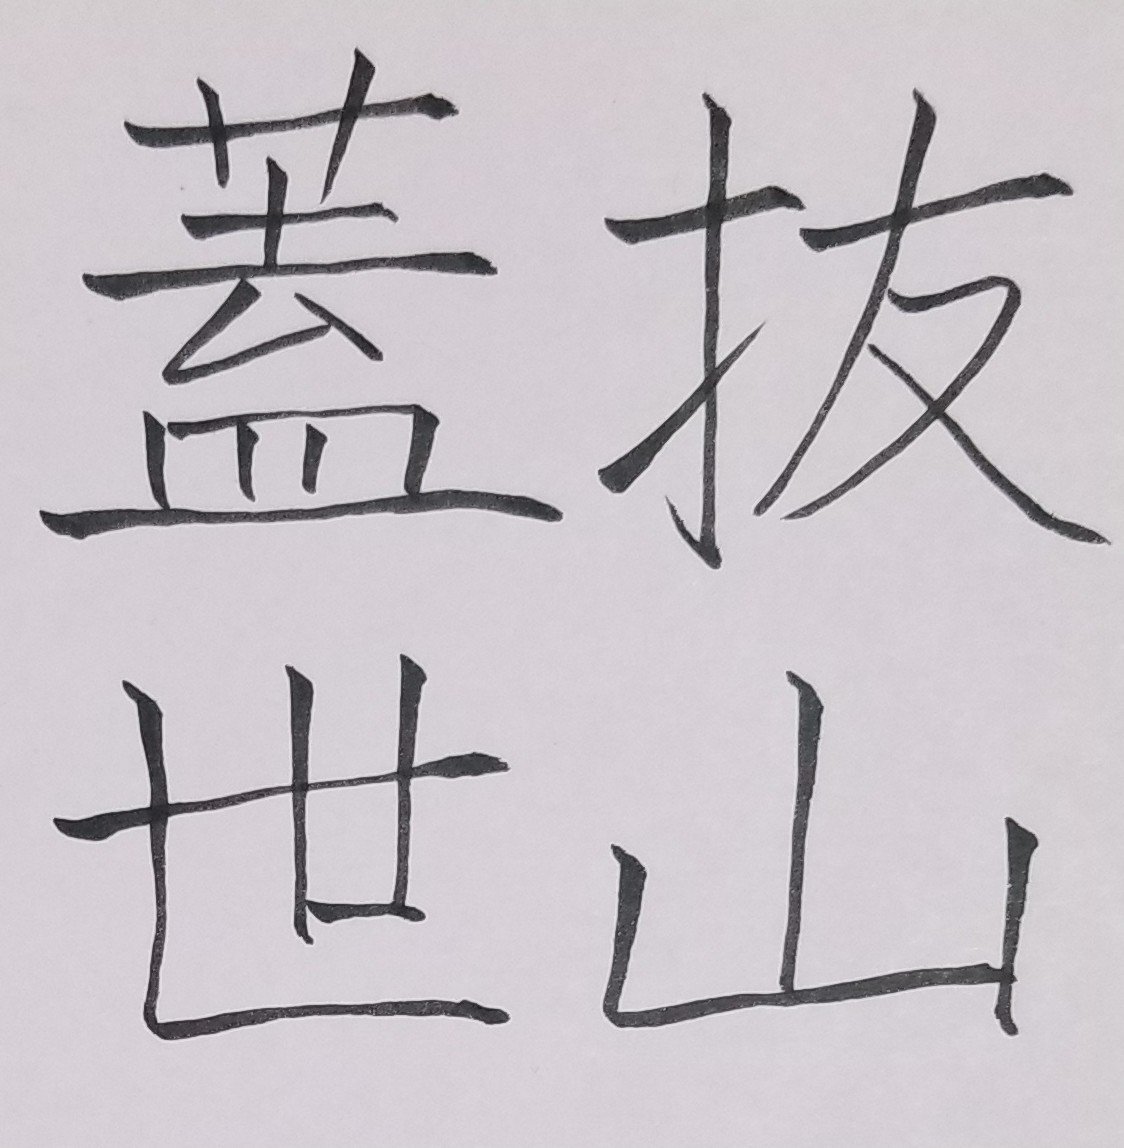 抜山
蓋世